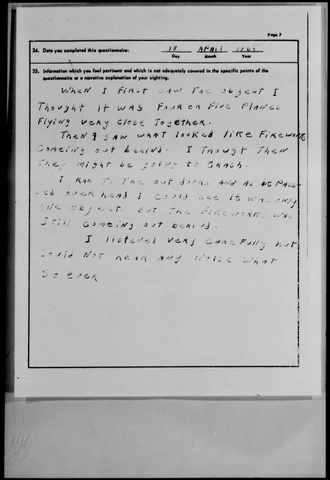 Page 7
34. Date you completed this questionnaire: 18 APRIL 1965
Day Month Year
35. Information which you feel pertinent and which is not adequately covered in the specific points of the
questionnaire or a narrative explanation of your sighting.
WHEN I FIRST SAW THE OBJECT I
THOUGHT IT WAS FOUR OR FIVE PLANES
FLYING VERY CLOSE TOGETHER.
THEN I SAW WHAT LOOKED LIKE FIREWORKS
COMEING OUT BEHIND. I THOUGT THEN
THEY MIGHT BE GOING TO CRASH.
I RAN TO THE OUT DOORS AND AS IT PASS
ED OVER HEAD I COULD SEE IT WAS ONLY
ONE OBJECT. BUT THE FIREWORKS WAS
STILL COMEING OUT BEHIND.
I LISTENED VERY CAREFULLY BUT
COULD NOT HEAR ANY NOISE WHAT
SO EVER